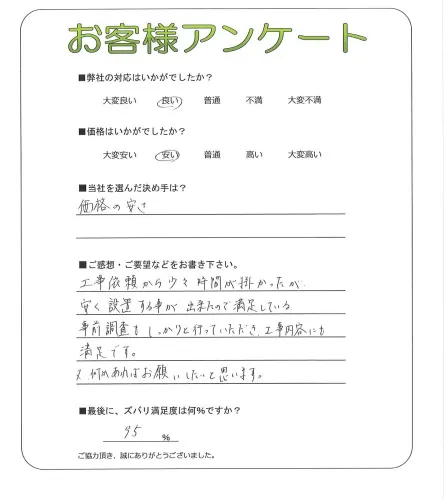 お客様アンケート
■弊社の対応はいかがでしたか?
大変良い 良い 普通 不満 大変不満
■価格はいかがでしたか?
大変安い 安い 普通 高い 大変高い
■当社を選んだ決め手は?
価格の安さ
■ご感想・ご要望などをお書き下さい。
工事依頼から少々時間が掛かったが、
安く設置する事が出来たので満足している。
事前調査もしっかりと行っていただき、工事内容にも
満足です。
又、何かあればお願いしたいと思います。
■最後に、ズバリ満足度は何%ですか?
95 %
ご協力頂き、誠にありがとうございました。